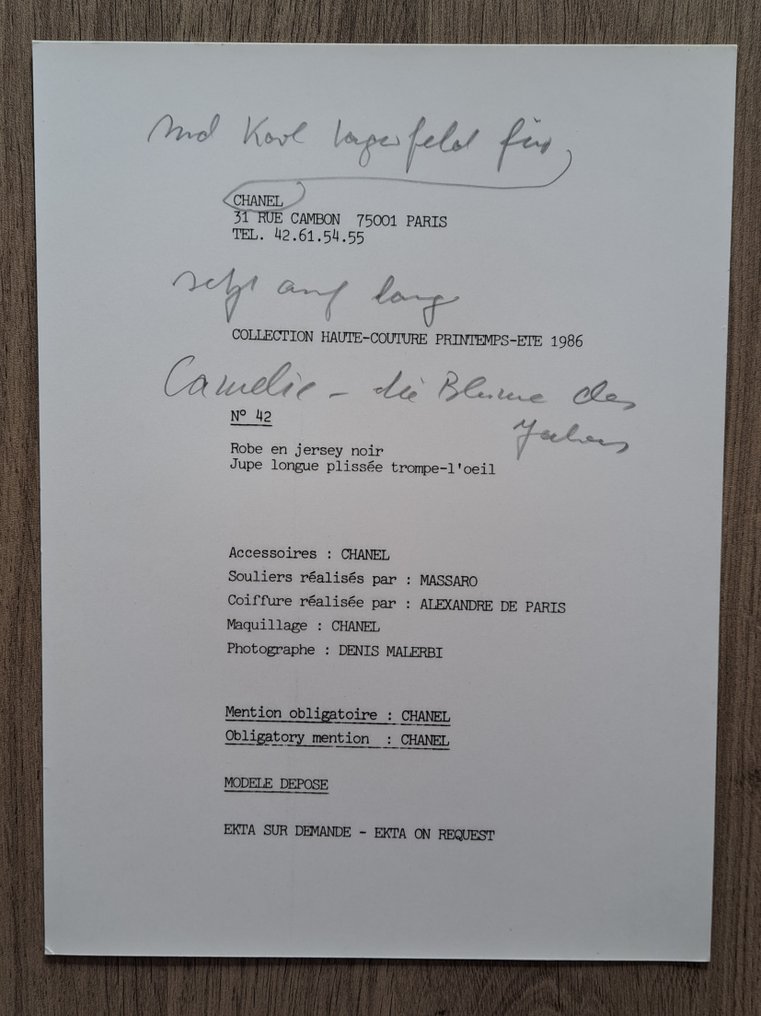 und Karl Lagerfeld für
CHANEL
31 RUE CAMBON 75001 PARIS
TEL. 42.61.54.55
setzt auf lang
COLLECTION HAUTE-COUTURE PRINTEMPS-ETE 1986
Camelie - die Blume des
Jahres
N° 42
Robe en jersey noir
Jupe longue plissée trompe-l'oeil
Accessoires : CHANEL
Souliers réalisés par : MASSARO
Coiffure réalisée par : ALEXANDRE DE PARIS
Maquillage : CHANEL
Photographe : DENIS MALERBI
Mention obligatoire : CHANEL
Obligatory mention : CHANEL
MODELE DEPOSE
EKTA SUR DEMANDE - EKTA ON REQUEST